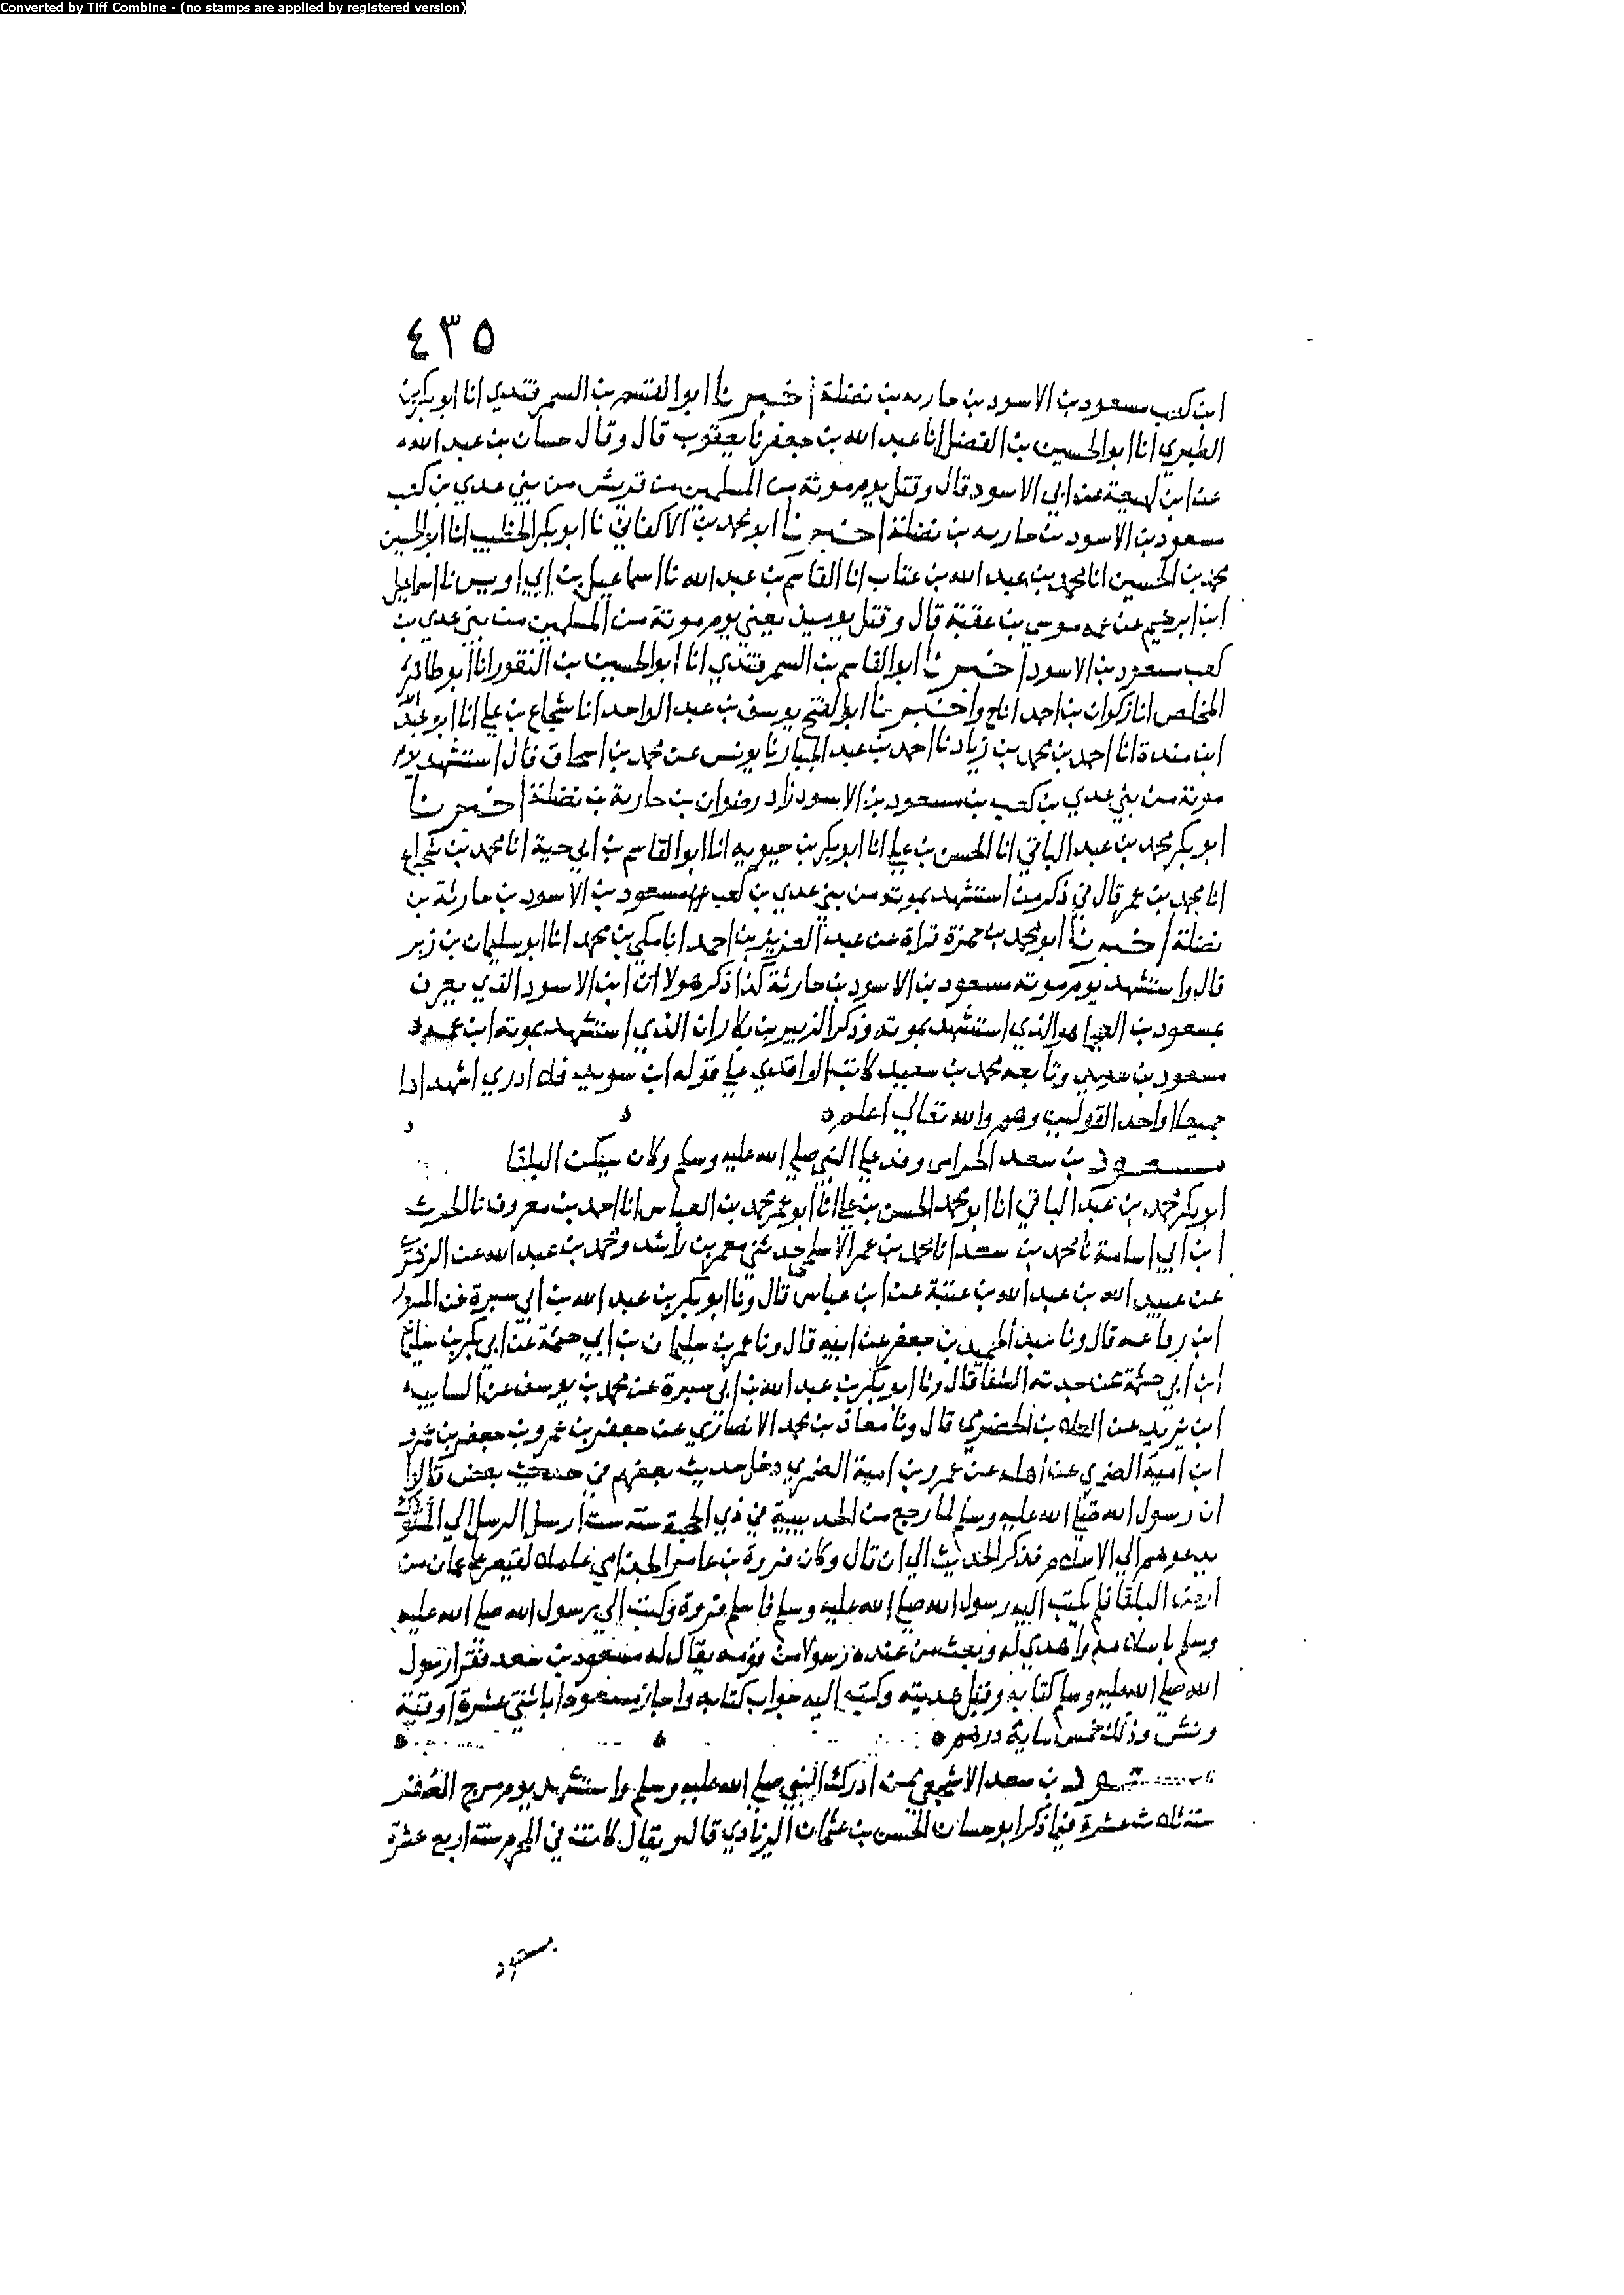 Converted by Tiff Combine - (no stamps are applied by registered version)
٤٣٥
ابن كعب مسعود بن الاسود بن حاربه بن نضلة اخبرنا ابو القسم بن السمرقندي انا ابو بكر بن
الطبري انا ابو الحسين بن الفضل انا عبد الله بن جعفر نا يعقوب قال وقال حسان بن عبد الله
عن ابن لهيعة عن ابي الاسود قال وقتل يوم موتة من المسلمين من قريش من بني عدي بن كعب
مسعود بن الاسود بن حاربه بن نضلة اخبرنا ابو محمد بن الاكفاني نا ابو بكر الخطيب انا ابو الحسين
محمد بن الحسين انا محمد بن عبد الله بن عتاب انا القاسم بن عبد الله نا اسماعيل بن ابي اويس نا اسماعيل
ابن ابرهيم عن عمه موسى بن عقبة قال وقتل يوميذ يعني يوم موتة من المسلمين من بني عدي بن
كعب مسعود بن الاسود اخبرنا ابو القاسم بن السمرقندي انا ابو الحسين بن النقور انا ابو طاهر
المخلص انا زكوان بن احمد اناح واخبرنا ابو الفتح يوسف بن عبد الواحد انا شجاع بن علي انا ابو عبد الله
ابن مندة انا احمد بن محمد بن زياد نا احمد بن عبد الجبار نا يونس عن محمد بن اسحاق قال استشهد يوم
موتة من بني عدي بن كعب بن مسعود بن الاسود زاد رضوان بن حاربة بن نضلة اخبرنا
ابو بكر محمد بن عبد الباقي انا الحسن بن علي انا ابو بكر بن حيويه انا ابو القاسم بن ابي حية انا محمد بن شجاع
انا محمد بن عمر قال في ذكر من استشهد بموته من بني عدي بن كعب مسعود بن الاسود بن حارثة بن
نضلة اخبرنا ابو محمد بن حمزة قراة عن عبد العزيز بن احمد انا مكي بن محمد انا ابو سليمان بن زبر
قال واستشهد يوم موته مسعود بن الاسود بن حارثة كذا ذكر هولا ان ابن الاسود الذي يعرف
بمسعود بن هو الذي استشهد بموته وذكر الزبير بن بكار ان الذي استشهد بموته ابن عمه
مسعود بن سويد وتابعه محمد بن سعيد كاتب الواقدي علي قوله ابن سويد فلا ادري اشهداها
جميعا او احد القولين وهم والله تعالي اعلم
مسعود بن سعد وفد علي النبي صلي الله عليه وسلم وكان يسكن البلقا
ابو بكر محمد بن عبد الباقي انا ابو محمد الحسن بن علي انا ابو عمر محمد بن العباس انا احمد بن معروف نا الحرث
ابن ابي اسامة نا محمد بن سعد انا محمد بن عمر الاسلمي حدثني معمر بن راشد ومحمد بن عبد الله عن الزهري
عن عبيد الله بن عبد الله بن عتبة عن ابن عباس قال ونا ابو بكر بن عبد الله بن ابي سبرة عن المسور
ابن رفاعه قال ونا عبد الحميد بن جعفر عن ابيه قال ونا عمر بن سليمان بن ابي حثمة عن ابي بكر بن سليمان
ابن ابي حثمة عن جدته الشفا قال ونا ابو بكر بن عبد الله بن ابي سبرة عن محمد بن يوسف عن السايب
ابن يزيد عن العلا بن الحضرمي قال ونا معاذ بن محمد الانصاري عن جعفر بن عمرو بن جعفر بن عمرو
ابن امية الضمري عن اهله عن عمرو بن امية الضمري دخل حديث بعضهم في حديث بعض قالوا
ان رسول الله صلي الله عليه وسلم لما رجع من الحديبية في ذي الحجة سنة ست ارسل الرسل الي الملوك
يدعوهم الي الاسلام فذكر الحديث الي ان قال وكان فروة بن عامر الجذامي عاملا لقيصر علي عمان من
ارض البلقا فلم يكتب اليه رسول الله صلي الله عليه وسلم فاسلم فروة وكتب الي رسول الله صلي الله عليه
وسلم باسلامه واهدي له وبعث من عنده رسولا من قومه يقال له مسعود بن سعد فقرا رسول
الله صلي الله عليه وسلم كتابه وقبل هديته وكتب اليه جواب كتابه واجاز مسعودا باثنتي عشرة اوقية
ونش وذلك خمس ماية درهم
مسعود بن سعد الاشجعي ممن ادرك النبي صلي الله عليه وسلم واستشهد يوم مرج الصفر
سنة ثلاث عشرة فيما ذكر ابو حسان الحسن بن عثمان الزيادي قال ويقال كانت في المحرم سنة اربع عشرة
مسعود